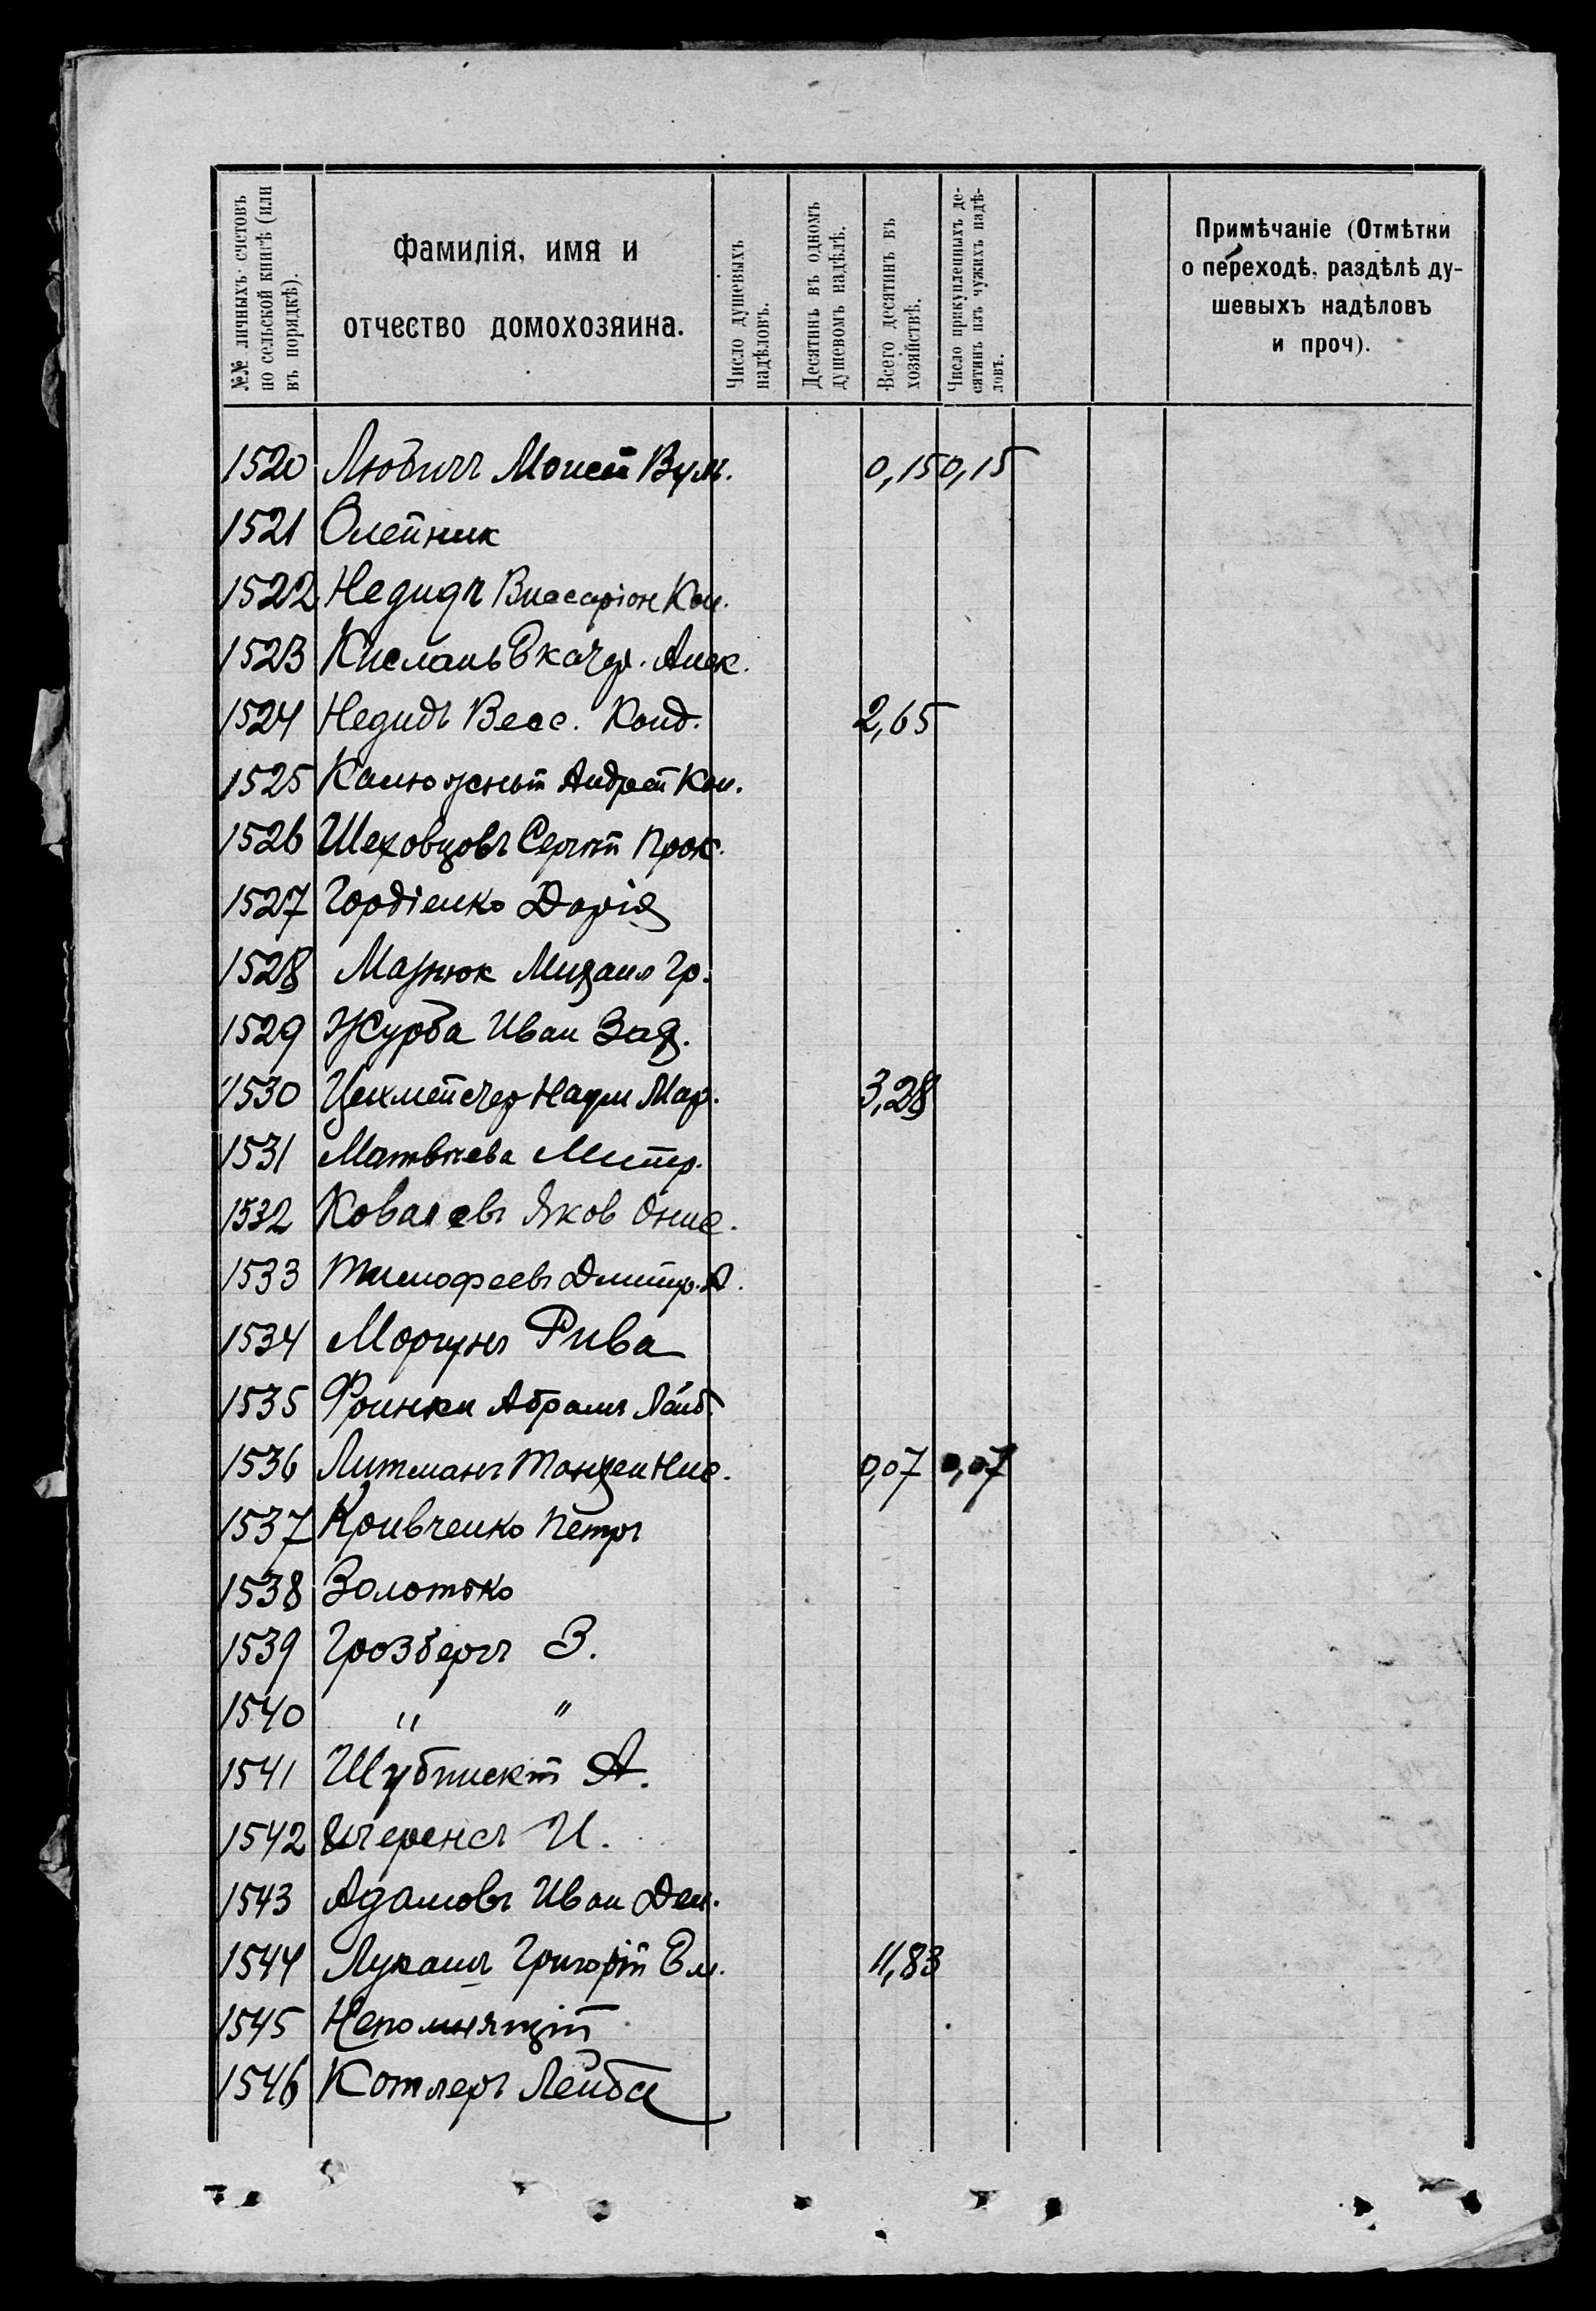 №№ личныхъ счетовъ по сельской книгѣ (или въ порядкѣ).
Фамилія, имя и отчество домохозяина.
Число душевыхъ надѣловъ.
Десятинъ въ одномъ душевомъ надѣлѣ.
Всего десятинъ въ хозяйствѣ.
Число прикупленныхъ десятинъ изъ чужихъ надѣловъ.
Примѣчаніе (Отмѣтки о переходѣ, раздѣлѣ душевыхъ надѣловъ и проч).
1520 Любичъ Моисей 0,15 0,15
1521 Олейник
1522 Недидъ Виссаріон Кон.
1523 Кислань Екатер. Алек.
1524 Недидъ Весс. Конд. 2,65
1525 Калюжный Андрей Кон.
1526 Шеховцовъ Сергѣй Прок.
1527 Гордіенко Дарія
1528 Мазнюк Михаил Гр.
1529 Журба Иван Зах.
1530 Цехмейстер Наум Мар. 3,28
1531 Матвѣева Митр.
1532 Ковалевъ Яков Онис.
1533 Тимофеевъ Дмитр. А.
1534 Моргунъ Рива
1535 Абрамъ Лейб.
1536 Литманъ 0,07 0,07
1537 Кривченко Петръ
1538 Золотько
1539 Грозбергъ З.
1540 " "
1541 А.
1542 И.
1543 Адамовъ Иван Дем.
1544 Григорій Ем. 11,83
1545 Непомнящій
1546 Котлеръ Лейба